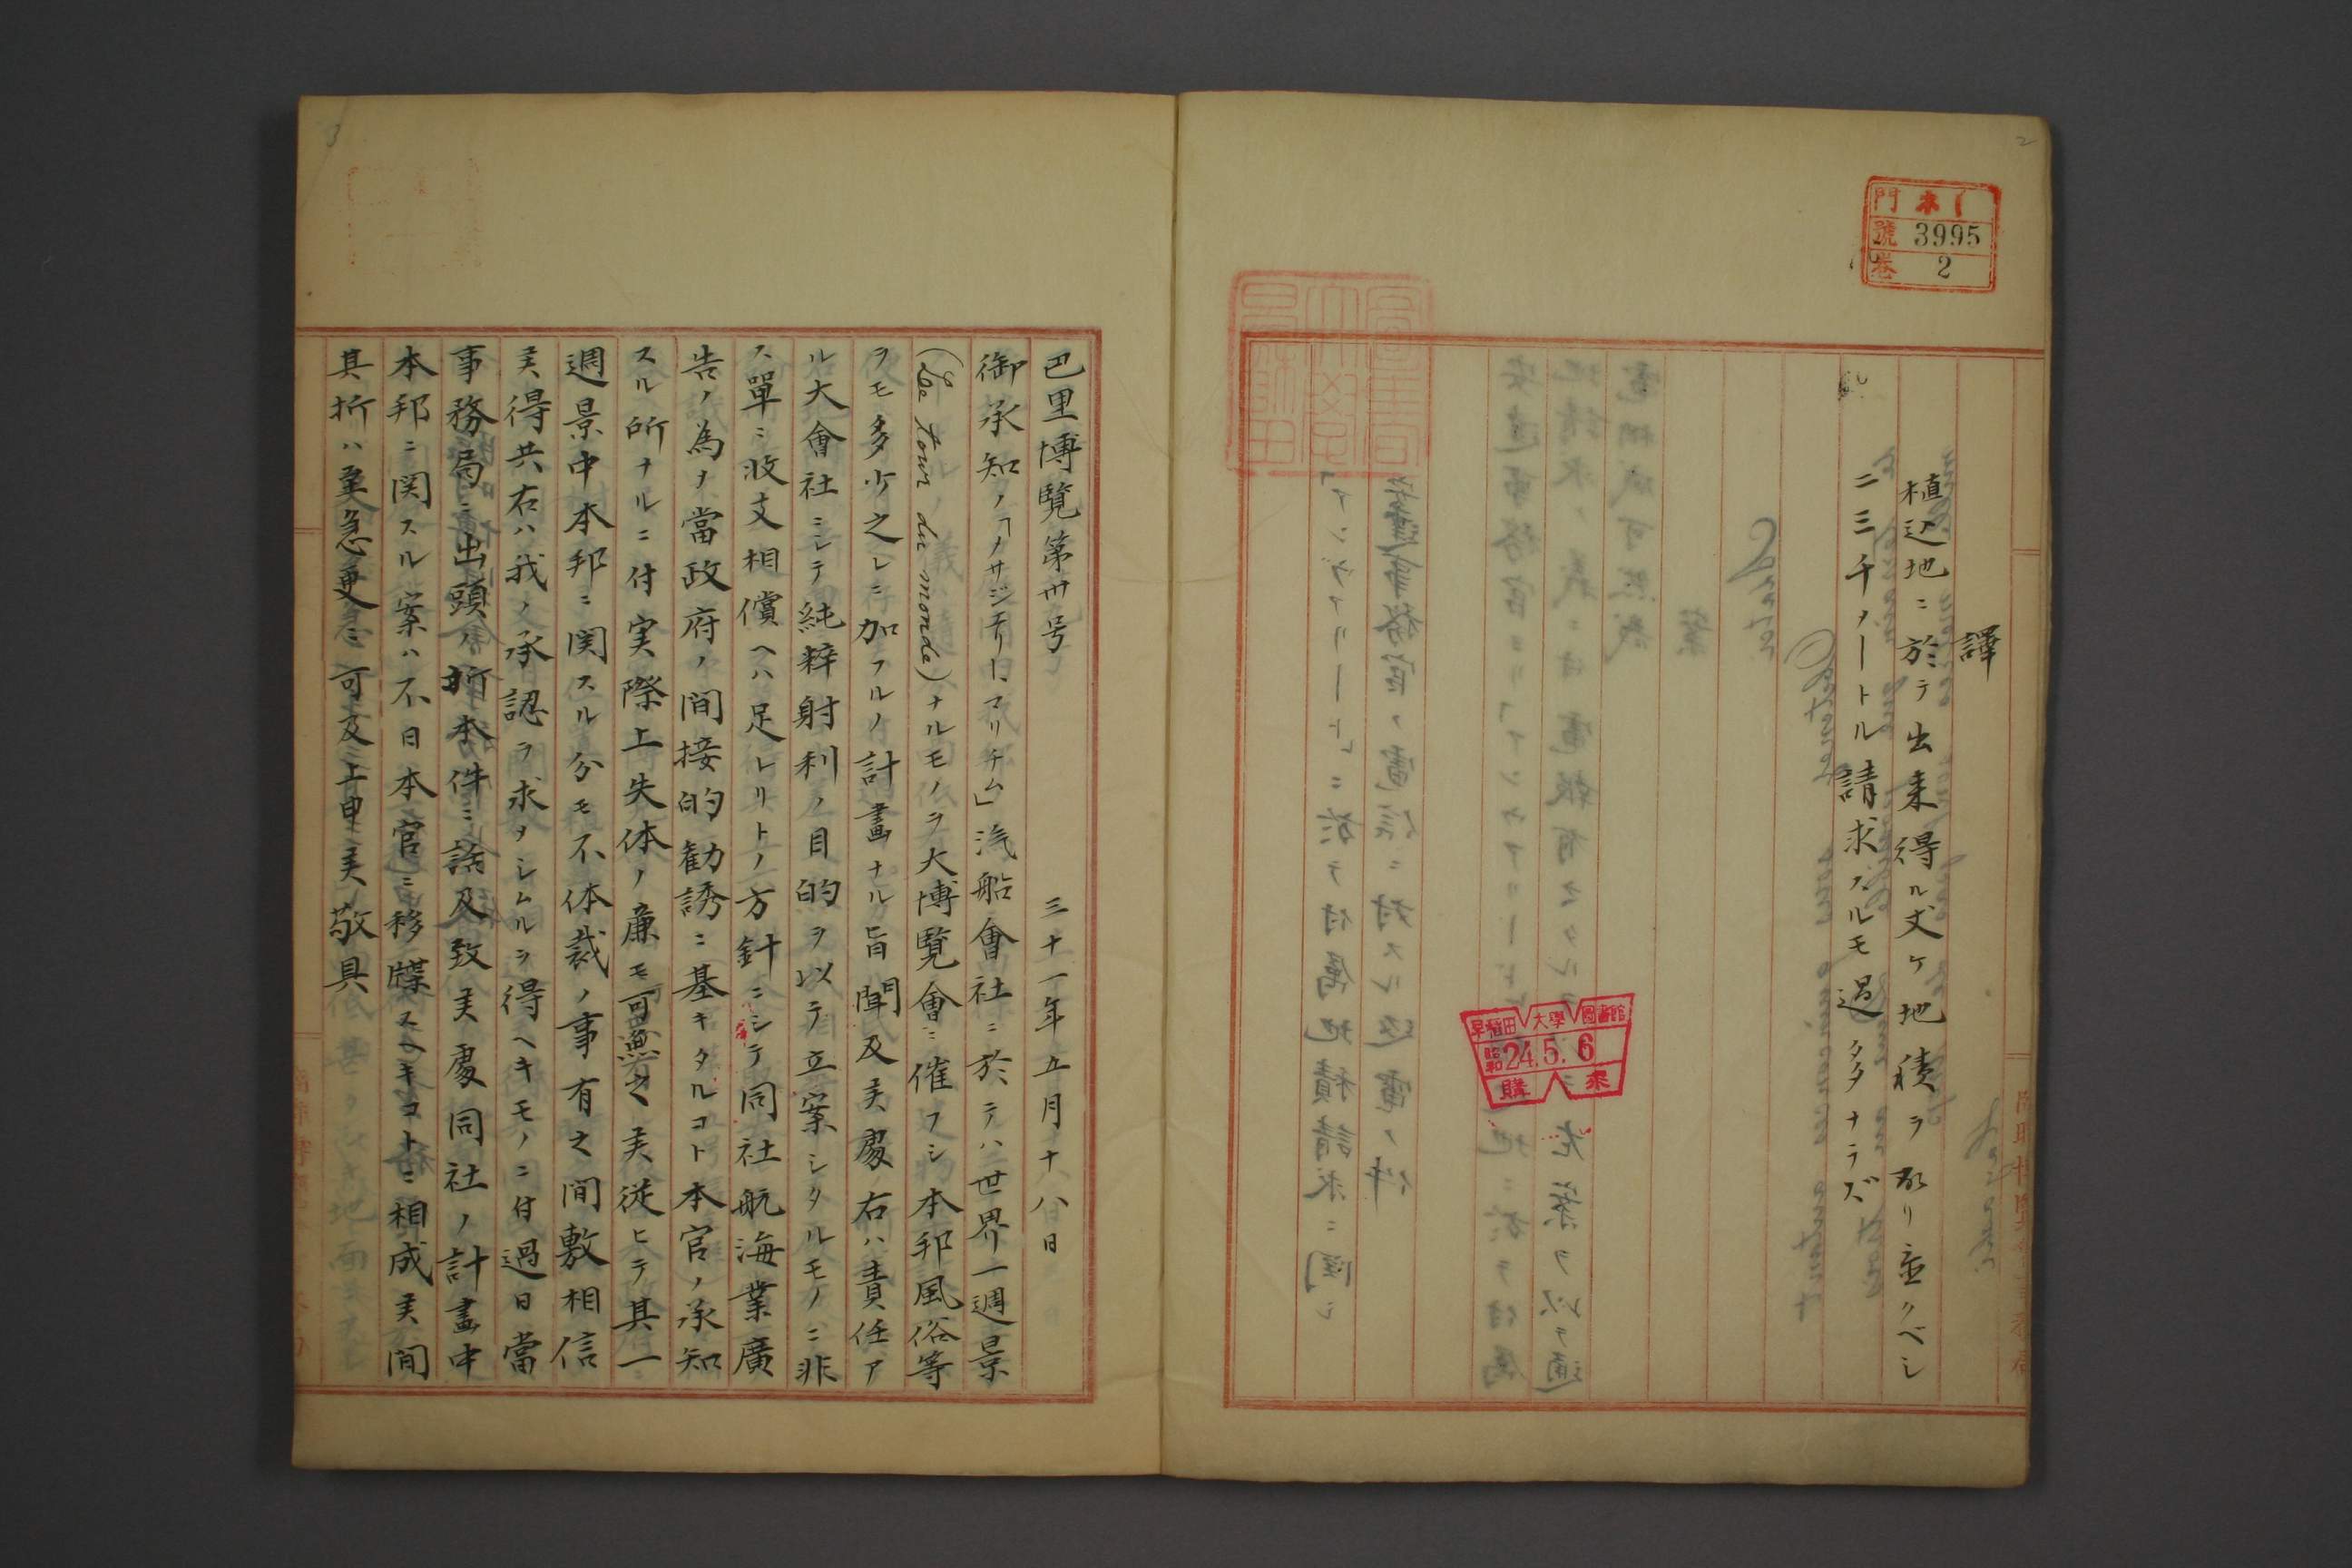 2
門 ホ 1
號 3995
巻 2
譯
植込地ニ於テ出来得ル丈ケ地積ヲ取リ並クベシ
二三千メートル請求スルモ過多ナラズ
早稲田大學圖書館
昭和 24.5.6
購求
3
巴里博覧第卅号
三十一年五月十八日
御承知ノ「メサジエリー、マリチム」汽船會社ニ於テハ世界一週景
(Le tour du monde)ナルモノヲ大博覧會ニ催フシ本邦風俗等
ヲモ多少之レニ加フルノ計畫ナル旨聞及候處右ハ責任ア
ル大會社ニシテ純粋射利ノ目的ヲ以テ立案シタルモノニ非
ス單ニ收支相償ヘハ足レリトノ方針ニシテ同社航海業廣
告ノ為メ當政府ノ間接的勧誘ニ基キタルコト本官ノ承知
スル所ナルニ付実際上失体ノ廉モ可無之候従ヒテ其一
週景中本邦ニ関スル分モ不体裁ノ事有之間敷相信
候得共右ハ我ノ承認ヲ求メシムルヲ得ヘキモノニ付過日當
事務局ニ出頭ノ折本件ニ談及致候處同社ノ計畫中
本邦ニ関スル案ハ不日本官ニ移牒スヘキコトニ相成候間
其折ハ至急更ニ可及上申候敬具